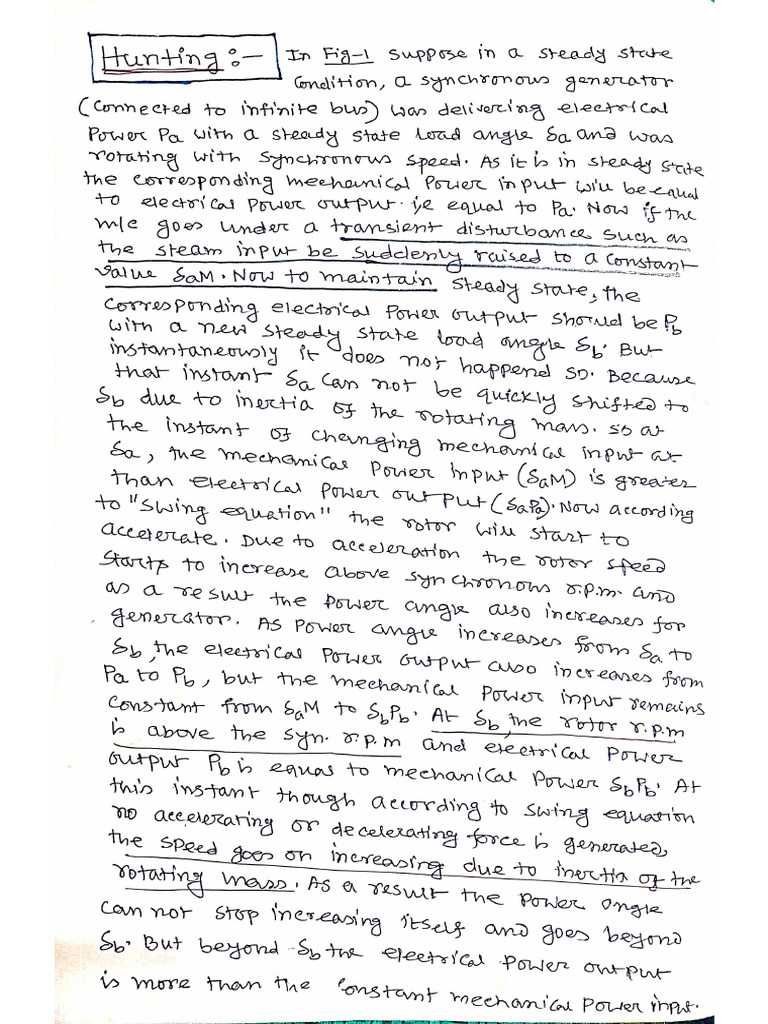 Hunting:- In Fig-1 suppose in a steady state
condition, a synchronous generator
(connected to infinite bus) was delivering electrical
Power Pa with a steady state load angle δa and was
rotating with synchronous speed. As it is in steady state
the corresponding mechanical Power input will be equal
to electrical power output. i,e equal to Pa. Now if the
m/c goes under a transient disturbance such as
the steam input be suddenly raised to a constant
value δaM. Now to maintain steady state, the
corresponding electrical Power output should be Pb
with a new steady state load angle δb. But
instantaneously it does not happend so. Because
that instant δa can not be quickly shifted to
δb due to inertia of the rotating mass. so at
the instant of changing mechanical input at
δa, the mechanical Power input (δaM) is greater
than electrical power output (δaPa). Now according
to "swing equation" the rotor will start to
accelerate. Due to acceleration the rotor speed
starts to increase above synchronous r.p.m. and
as a result the Power angle also increases for
generator. As power angle increases from δa to
δb, the electrical Power output also increases from
Pa to Pb, but the mechanical Power input remains
constant from δaM to δbPb. At δb, the rotor r.p.m
is above the syn. r.p.m and electrical Power
output Pb is equal to mechanical Power δbPb. At
this instant though according to swing equation
no accelerating or decelerating force is generated,
the speed goes on increasing due to inertia of the
rotating mass. As a result the power angle
can not stop increasing itself and goes beyond
δb. But beyond δb the electrical power output
is more than the constant mechanical power input.